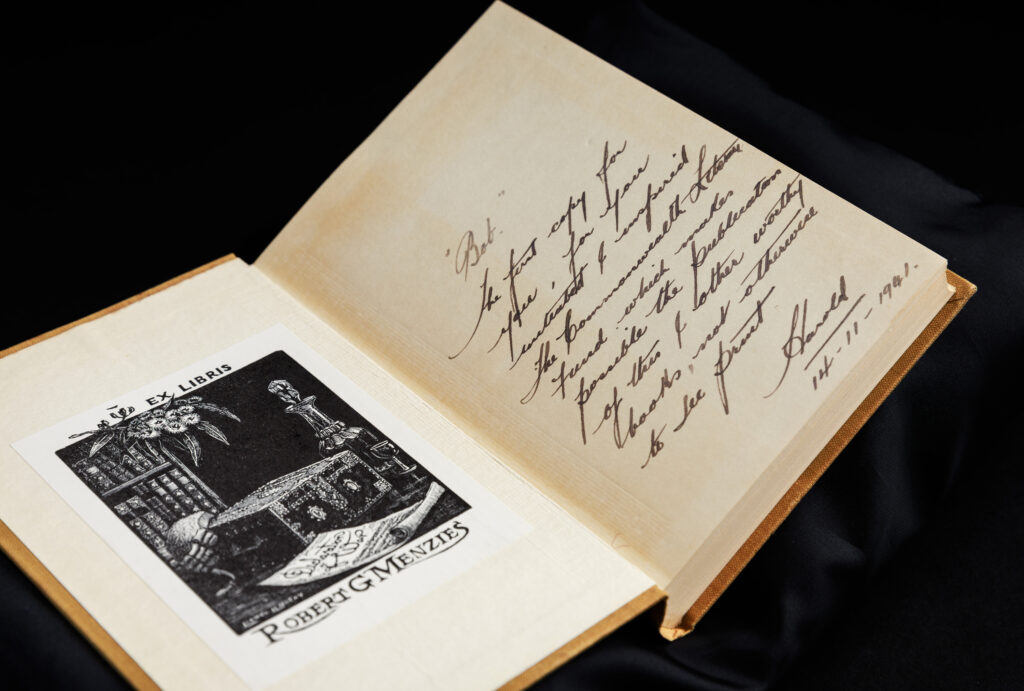 EX LIBRIS
ROBERT G MENZIES
"Bob."
The first copy for
you, for your
interest & inspired
the Commonwealth Literary
Fund which makes
possible the publication
of this & other worthy
books, not otherwise
to see print
Harold
14-11-1941.